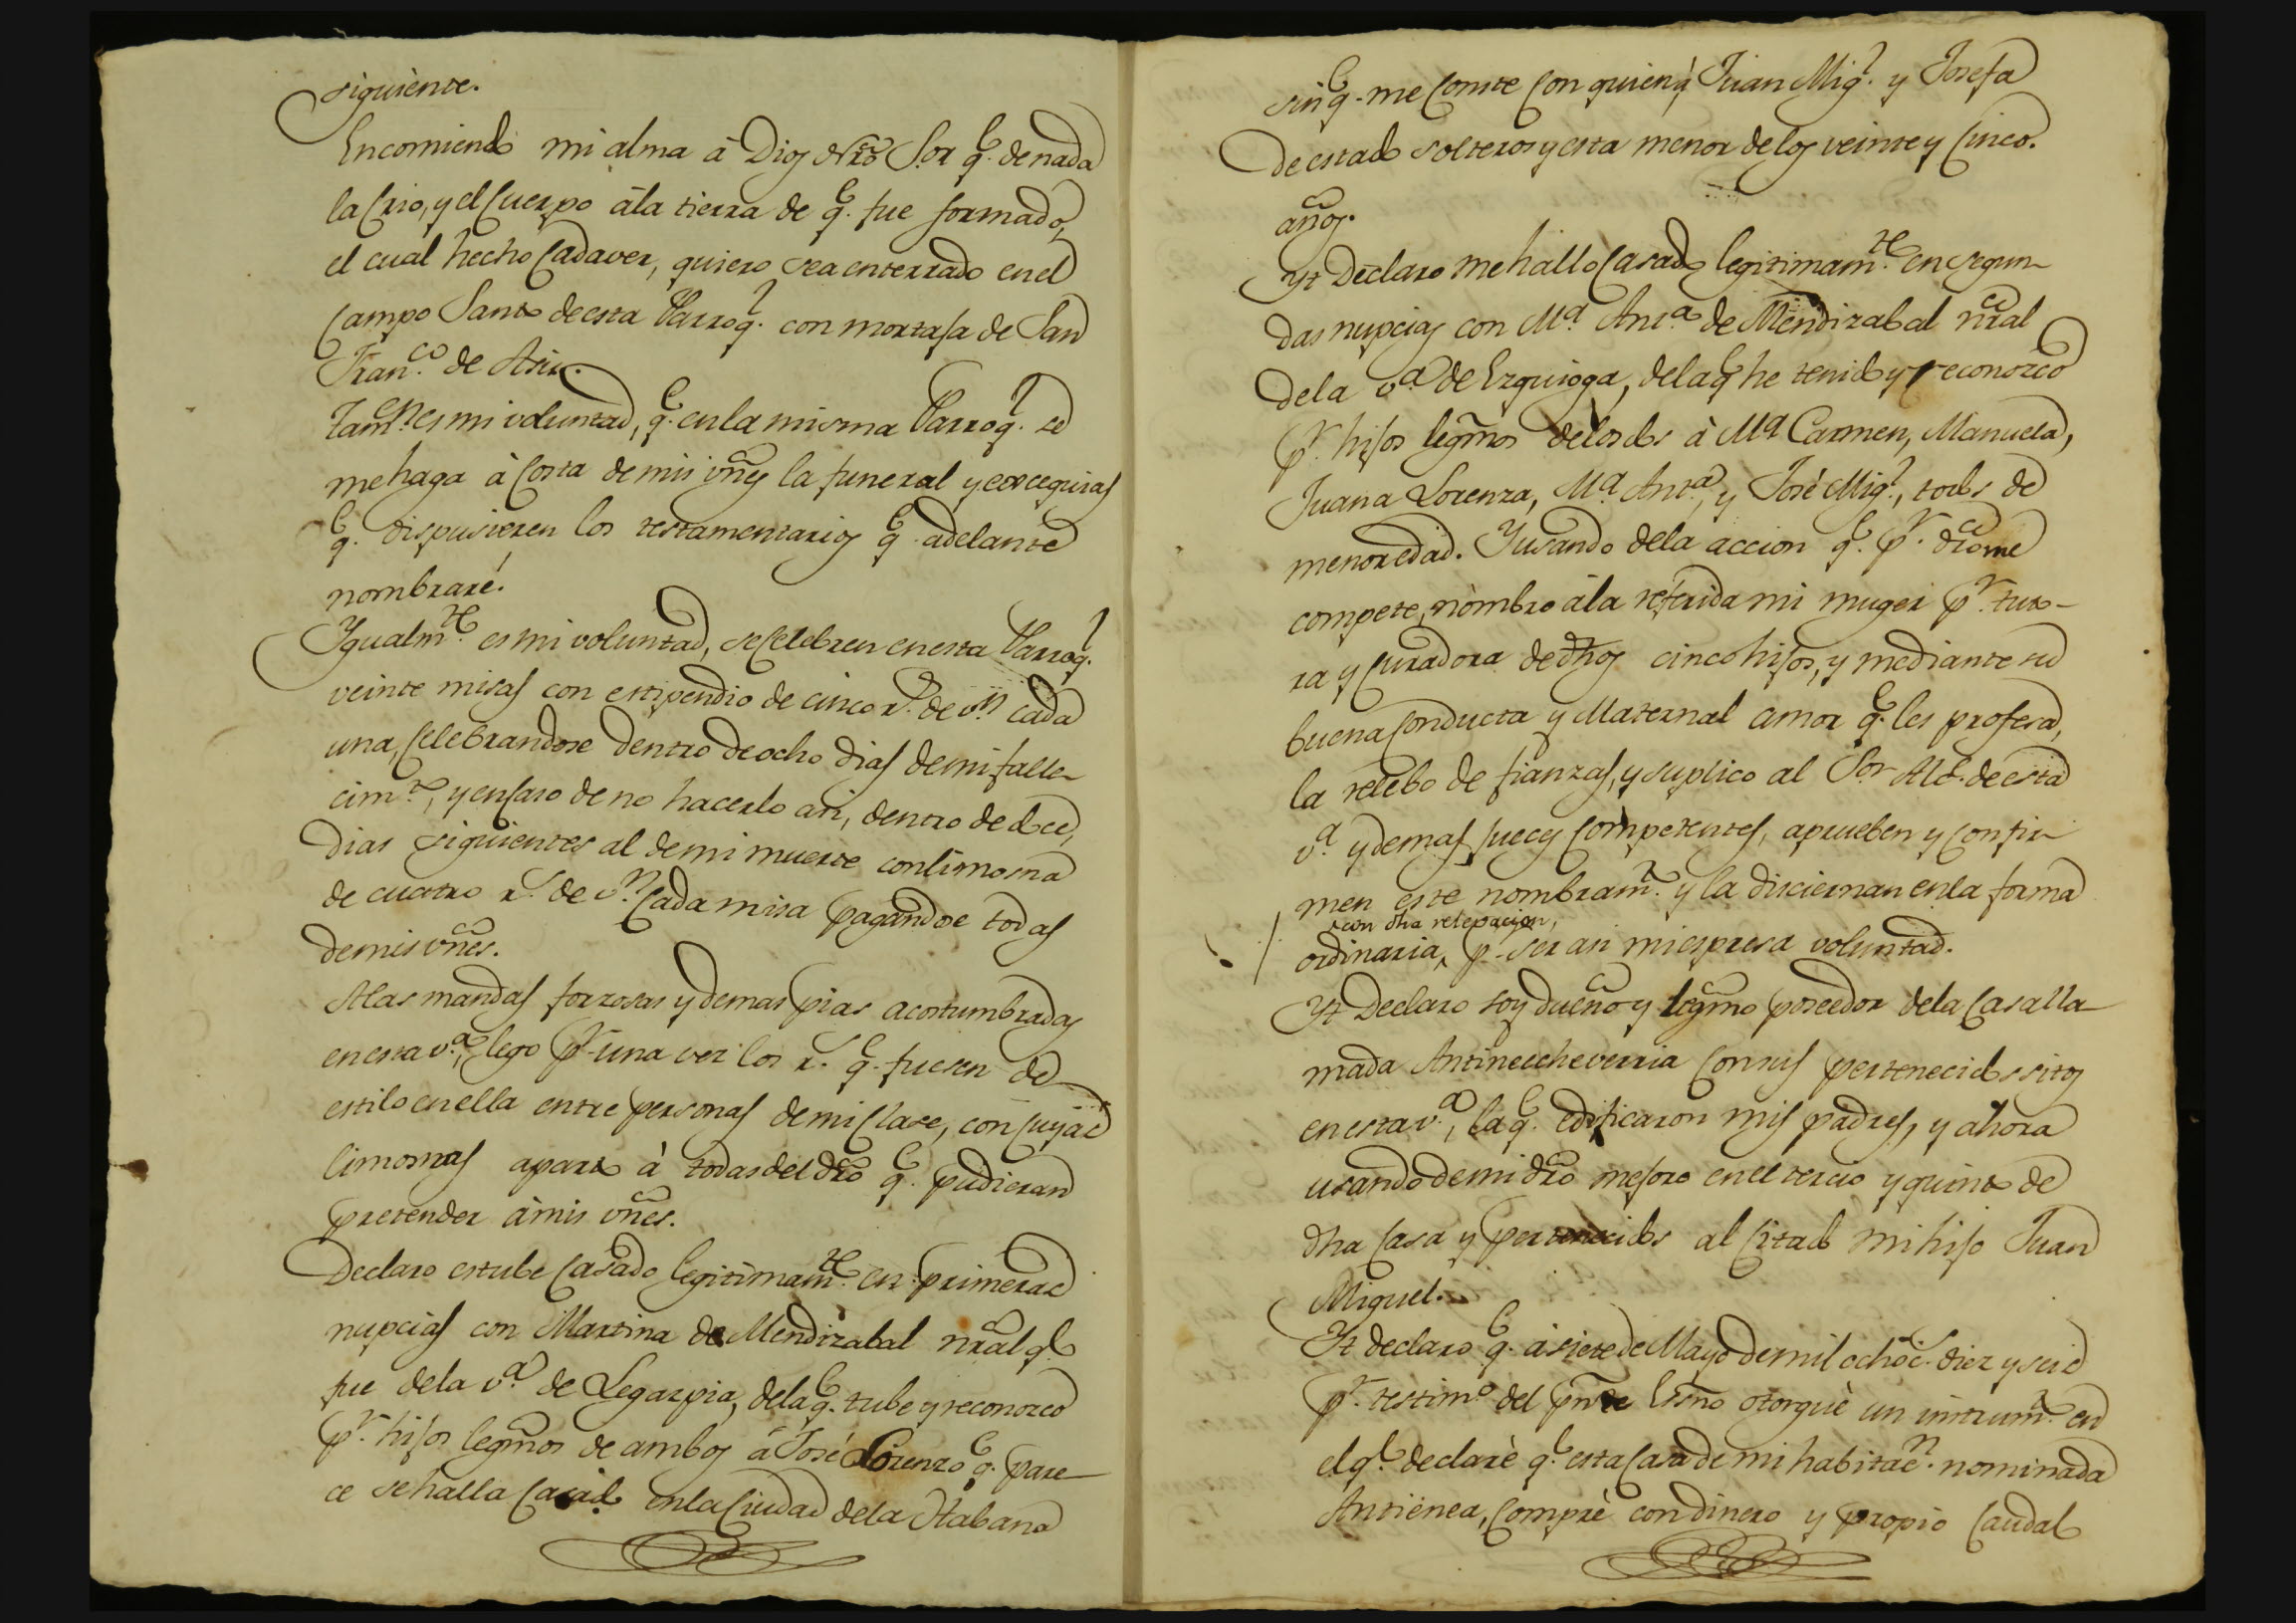 siguiente.
Encomiendo mi alma à Dios Nrõ Sor q.e de nada
la Crio, y el Cuerpo àla tierra de q.e fue formado,
el cual hecho Cadaver, quiero sea enterrado en el
Campo Santo de esta Parroq.l con mortaja de San
Fran.co de Asis.
Tam.en es mi voluntad, q.e en la misma Parroq.l se
me haga à Costa de mis vñes la funeral y
q.e dispusieren los testamentarios q.e adelante
nombraré.
Ygualm.te es mi voluntad, se Celebren en esta Parroq.l
veinte misas con estipendio de cinco r.s de v.n cada
una, Celebrandose dentro de ocho dias de mi falle-
cim.to, y en Caso de no hacerlo asi, dentro de doce,
dias siguientes al de mi muerte con limosna
de cuatro r.s de v.n Cada misa pagandose todas
de mis vñes.
A las mandas forzosas y demas pias acostumbradas
en esta v.a, lego p.r una vez los r.s q.e fuesen de
estilo en ella entre personas de mi Clase, con cuyas
limosnas aparto à todas del dr̃o q.e pudieran
pretender à mis vñes.
Declaro estube Casado legitimam.te en primeras
nupcias con Martina de Mendizabal nr̃al q.e
fue de la v.a de Legazpia, de la q.e tube y reconozco
p.r hijos legm̃os de ambos à José Lorenzo q.e pare-
ce se halla Casado en la Ciudad de la Habana
sin q.e me Conste Con quien, y Juan Mig.l y Josefa
de estado solteros y esta menor de los veinte y Cinco.
años.
Yt Declaro me hallo Casado legitimam.te en segun-
das nupcias con M.a Ant.a de Mendizabal nr̃al
de la v.a de Ezquioga, de la q.e he tenido y reconozco
p.r hijos legm̃os de los dos à M.a Carmen, Manuela,
Juana Lorenza, M.a Ant.a, y José Mig.l, todos de
menor edad. Y usando de la accion q.e p.r dr̃o me
compete, nombro àla referida mi muger p.r tuto-
ra y Curadora de dhos cinco hijos, y mediante su
buena Conducta y Maternal amor q.e les profesa,
la relebo de fianzas, y suplico al Sor Alc.e de esta
v.a y demas jueces Competentes, aprueben y Confir-
men este nombram.to y la disciernan en la forma
con dha relevacion,
ordinaria, p.r ser asi mi espresa voluntad.
Yt Declaro soy dueño y legm̃o poseedor de la Casa lla-
mada Antineecheverria Con sus pertenecidos sitos
en esta v.a, la q.e edificaron mis padres, y ahora
usando de mi dr̃o mejoro en el tercio y quinto de
dha Casa y pertenecidos al Citado mi hijo Juan
Miguel.
Yt declaro q.e à siete de Mayo de mil ochoc.s diez y seis
p.r testim.o del pnte Esñno otorguè un instrum.to en
el q.l declarè q.e esta Casa de mi habitac.n nominada
Antienea, Comprè con dinero y propio Caudal